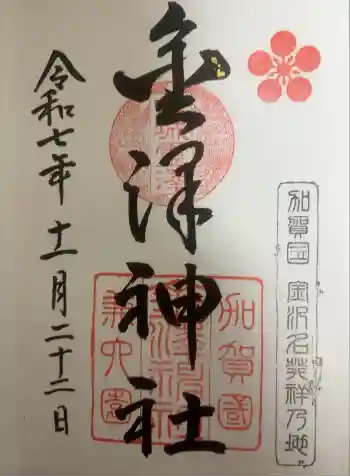 加賀國 金沢名発祥乃地
金澤神社
加賀國
兼六園
令和七年十一月二十二日